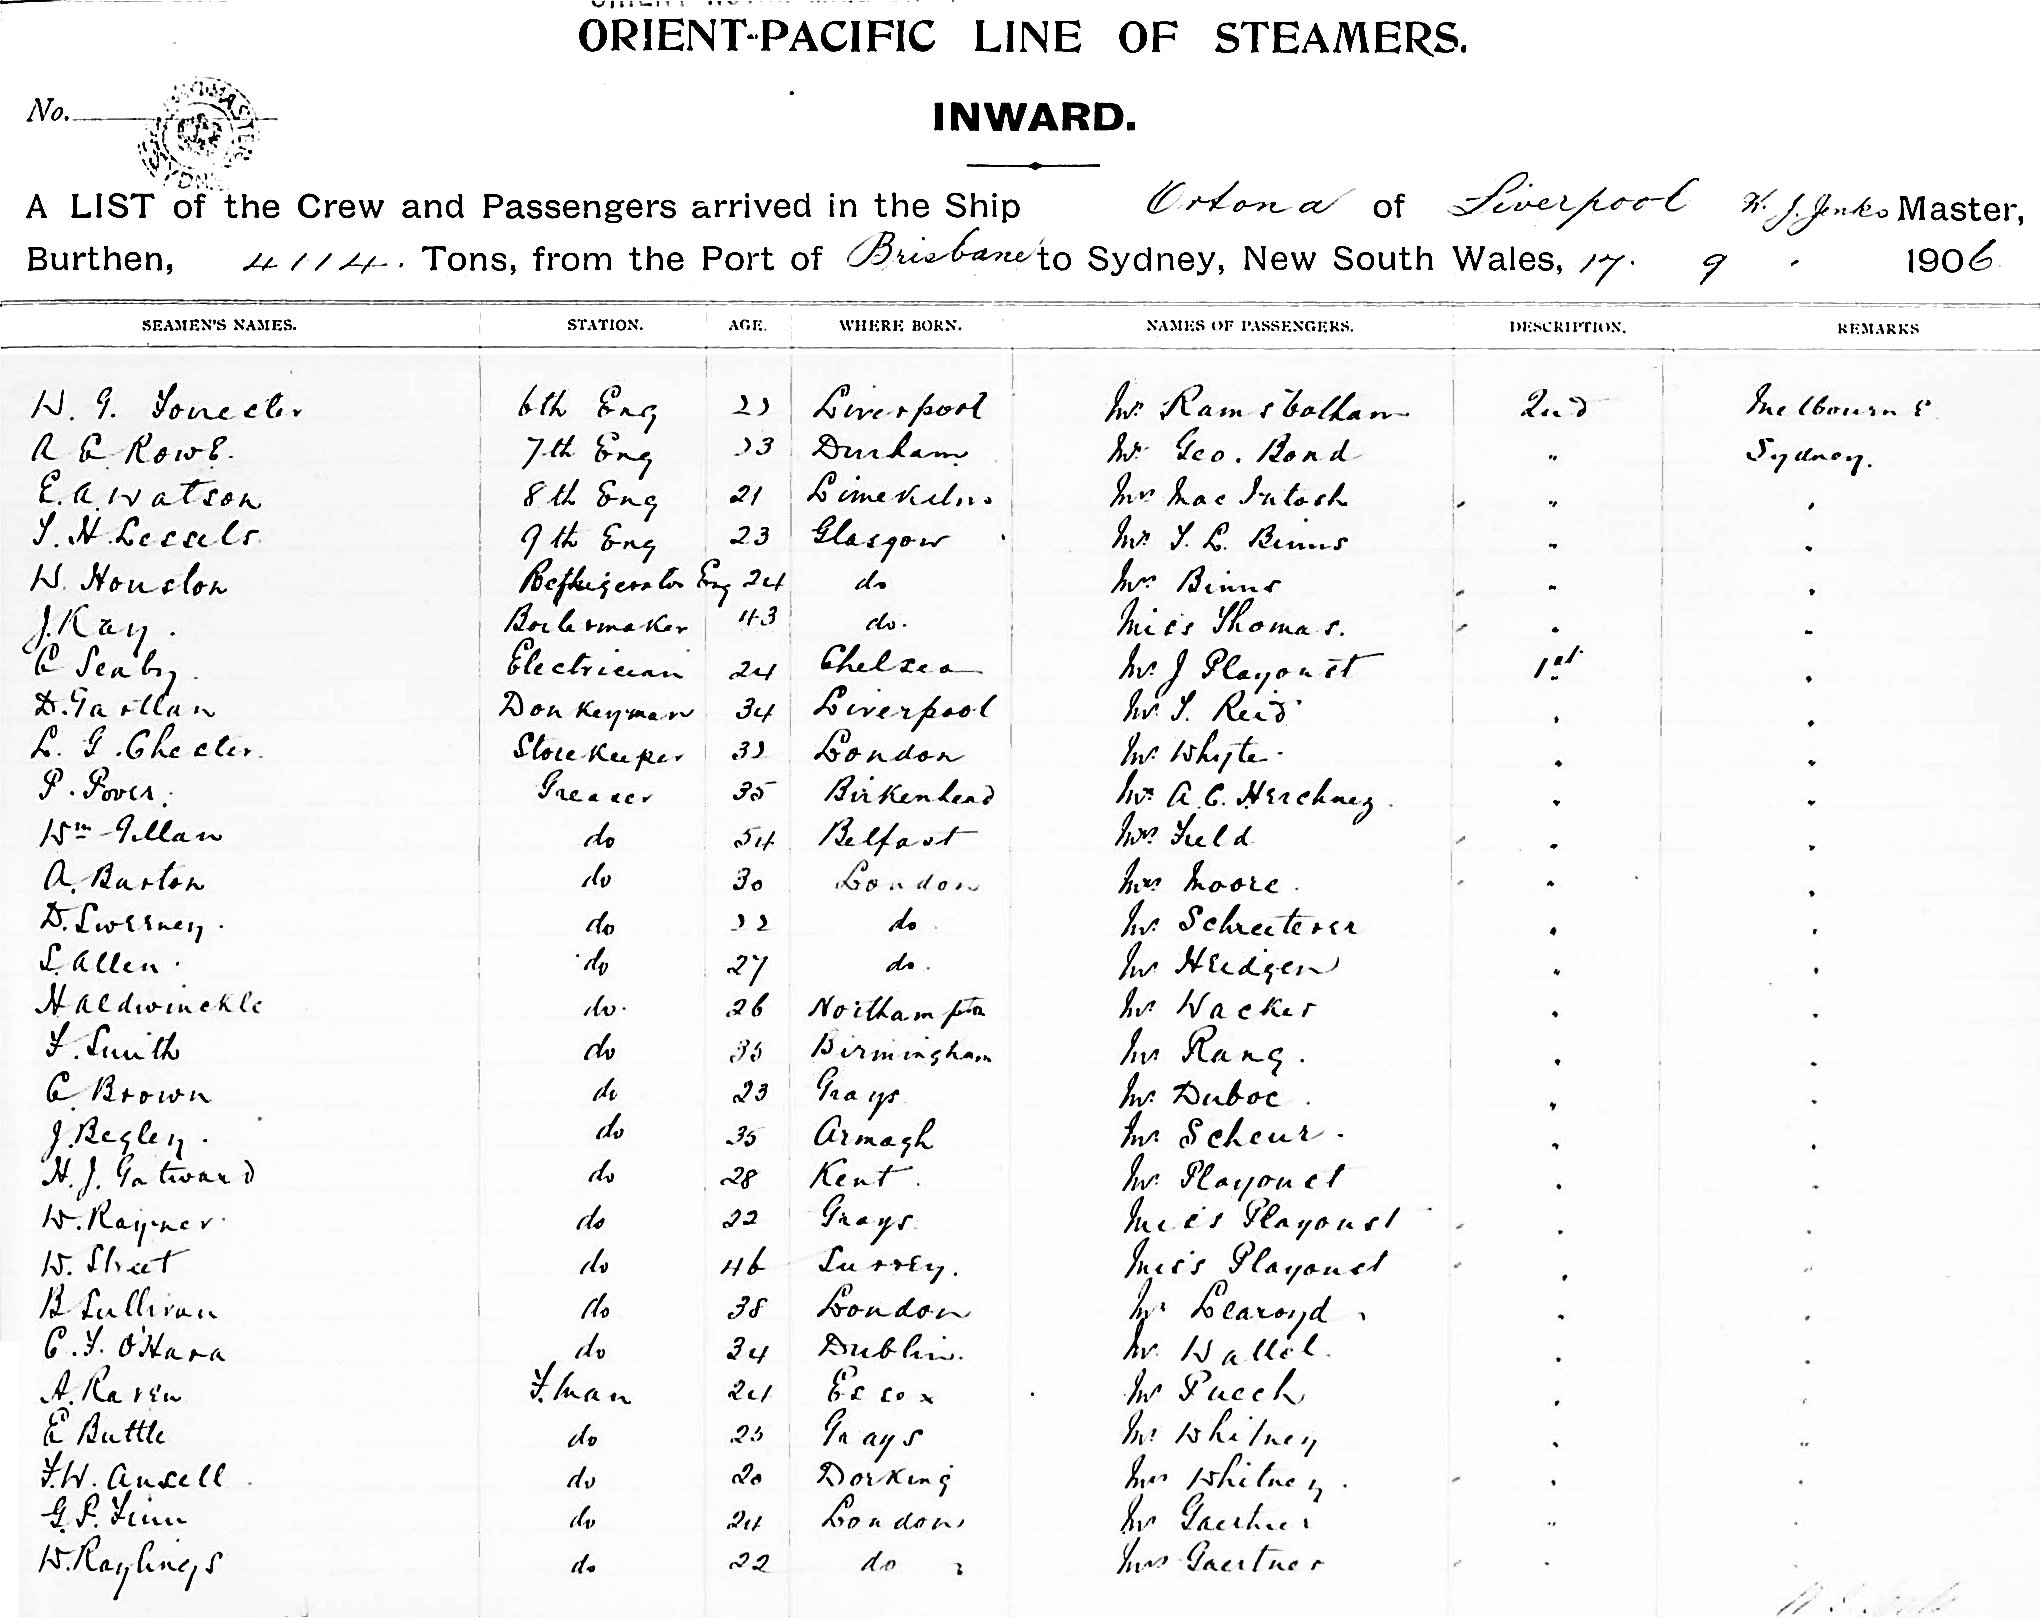 ORIENT-PACIFIC LINE OF STEAMERS.
No.
INWARD.
A LIST of the Crew and Passengers arrived in the Ship Ortona of Liverpool W. J. Jenks Master,
Burthen, 4114. Tons, from the Port of Brisbane to Sydney, New South Wales, 17. 9 . 1906
SEAMEN'S NAMES. STATION. AGE. WHERE BORN. NAMES OF PASSENGERS. DESCRIPTION. REMARKS
W. G. 6th Eng Liverpool Mr Ramsbotham 2nd Melbourne
A E Rowe. 7th Eng 33 Durham Mr Geo. Bond " Sydney.
E. A. Watson 8th Eng 21 Limekilns Mrs MacIntosh " "
T. H. Lessels 9th Eng 23 Glasgow Mr T. L. Binns " "
W. Houston Refrigerator Eng 24 do Mrs Binns " "
J. Kay. Boilermaker 43 do. Miss Thomas. " "
C Seaby. Electrician 24 Chelsea Mr J Playoust 1st "
D. Gartlan Donkeyman 34 Liverpool Mr T. Reid " "
L. G. Chester. Storekeeper 32 London Mr Whyte. " "
P. Pover. Greaser 35 Birkenhead Mr A. C. " "
Wm Gillan do 54 Belfast Mrs Field " "
A. Barton do 30 London Mrs Moore. " "
D. Sweeney. do 32 do Mr " "
S. Allen. do 27 do. Mr Heidgen " "
H Aldwinckle do. 26 Northampton Mr Wacker " "
F. Smith do 35 Birmingham Mr Rang. " "
C Brown do 23 Grays Mr Duboc. " "
J. Begley. do 35 Armagh Mr Scheur. " "
H. J. Gatward do 28 Kent. Mr Playoust " "
W. Rayner do 22 Grays Miss Playoust " "
W. Street do 46 Surrey. Miss Playoust " "
B Sullivan do 38 London Mr Learoyd " "
C. F. O'Hara do 34 Dublin. Mr " "
A. Raven F.man 24 Essex Mr Puech " "
E Buttle do 23 Grays Mr Whitney " "
F. W. Ansell do 20 Dorking Mrs Whitney. " "
G. P. Finn do 24 London Mr Gaertner " "
W. Raylings do 22 do Mrs Gaertner " "